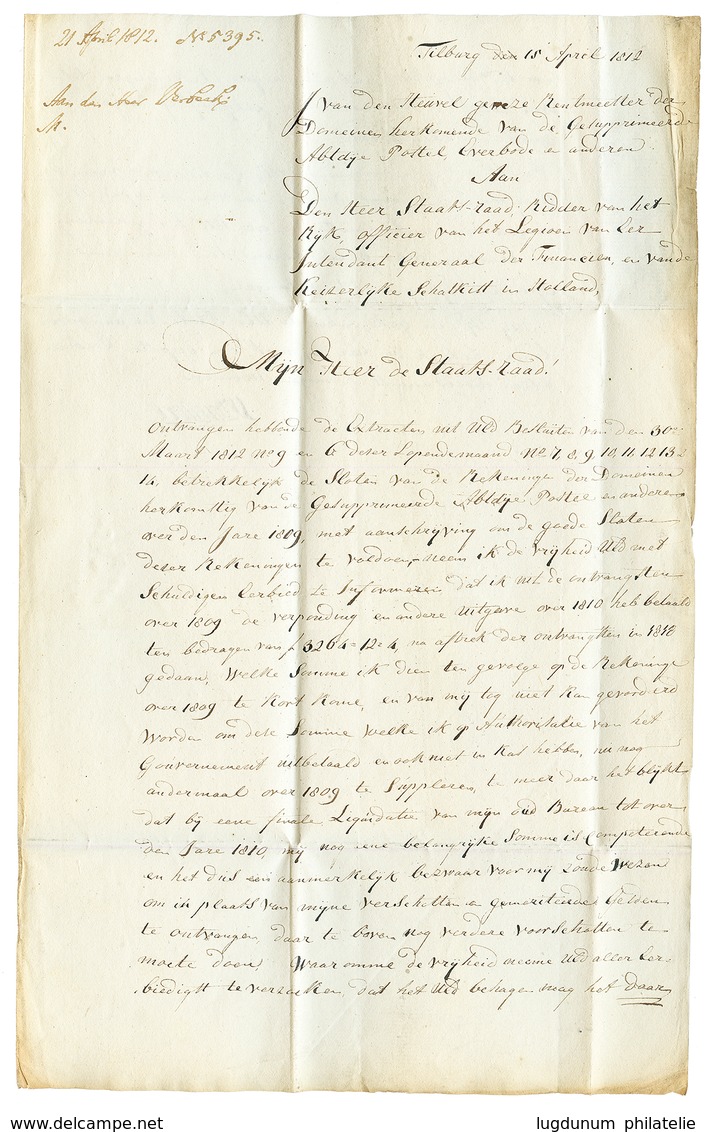 21 April 1812. No 5395.
Tilburg den 15 April 1812
Aan den Heer Verbeek
M.
J van den Heuvel geweze Rentmeester der
Domeinen herkomende van de Gesupprimeerde
Abtdije Postel, Everbode en anderen
Aan
Den Heer Staats-raad, Ridder van het
Ryk, officier van het Legioen van Eer
Intendant Generaal der Financien, en van de
Keizerlyke Schatkist in Holland,
Mijn Heer de Staats-raad!
Ontvangen hebbende de Extracten uit Uld Besluiten van den 30
Maart 1812 no 9 en 6 dezer Lopende maand No 7, 8, 9, 10, 11, 12 13 &
14, betrekkelyk de Sloten van de Rekeninge der Domeinen
herkomstig van de Gesupprimeerde Abtdije Postel en anderen
over den Jare 1809, met aanschrijving om de goede Sloten
dezer Rekeningen te voldoen, neem ik de vrijheid Uld met
Schuldigen Eerbied te Informeren dat ik uit de ontvangsten
over 1809 de verponding en andere uitgave over 1810 heb betaald
ten bedragen van f 3264-12-4, na aftrek der ontvangsten in 1810
gedaan, Welke Somme ik dien ten gevolge op de Rekeninge
over 1809 te Kort Kome, en van mij tog niet kan gevorderd
Worden om deze Somme welke ik op Authorisatie van het
Gouvernement uitbetaald en ook niet in Kas hebbe, nu nog
andermaal over 1809 te Suppleren, te meer daar het blykt
dat by eene finale Liquidatie van mijn oud Bureau tot over
den Jare 1810, mij nog eene belangrijke Somme is Competerende
en het dus een aanmerkelyk bezwaar voor mij Zoude Wezen
om in plaats van mijne verschotten en gemeriteerde Gelden
te ontvangen, daar te boven nog verdere voorschotten te
moete doen, Waaromme de vrijheid neeme Uld aller Eer
biedigst te verzoeken, dat het Uld behagen mag het daar
delcampe.net
lugdunum philatelie